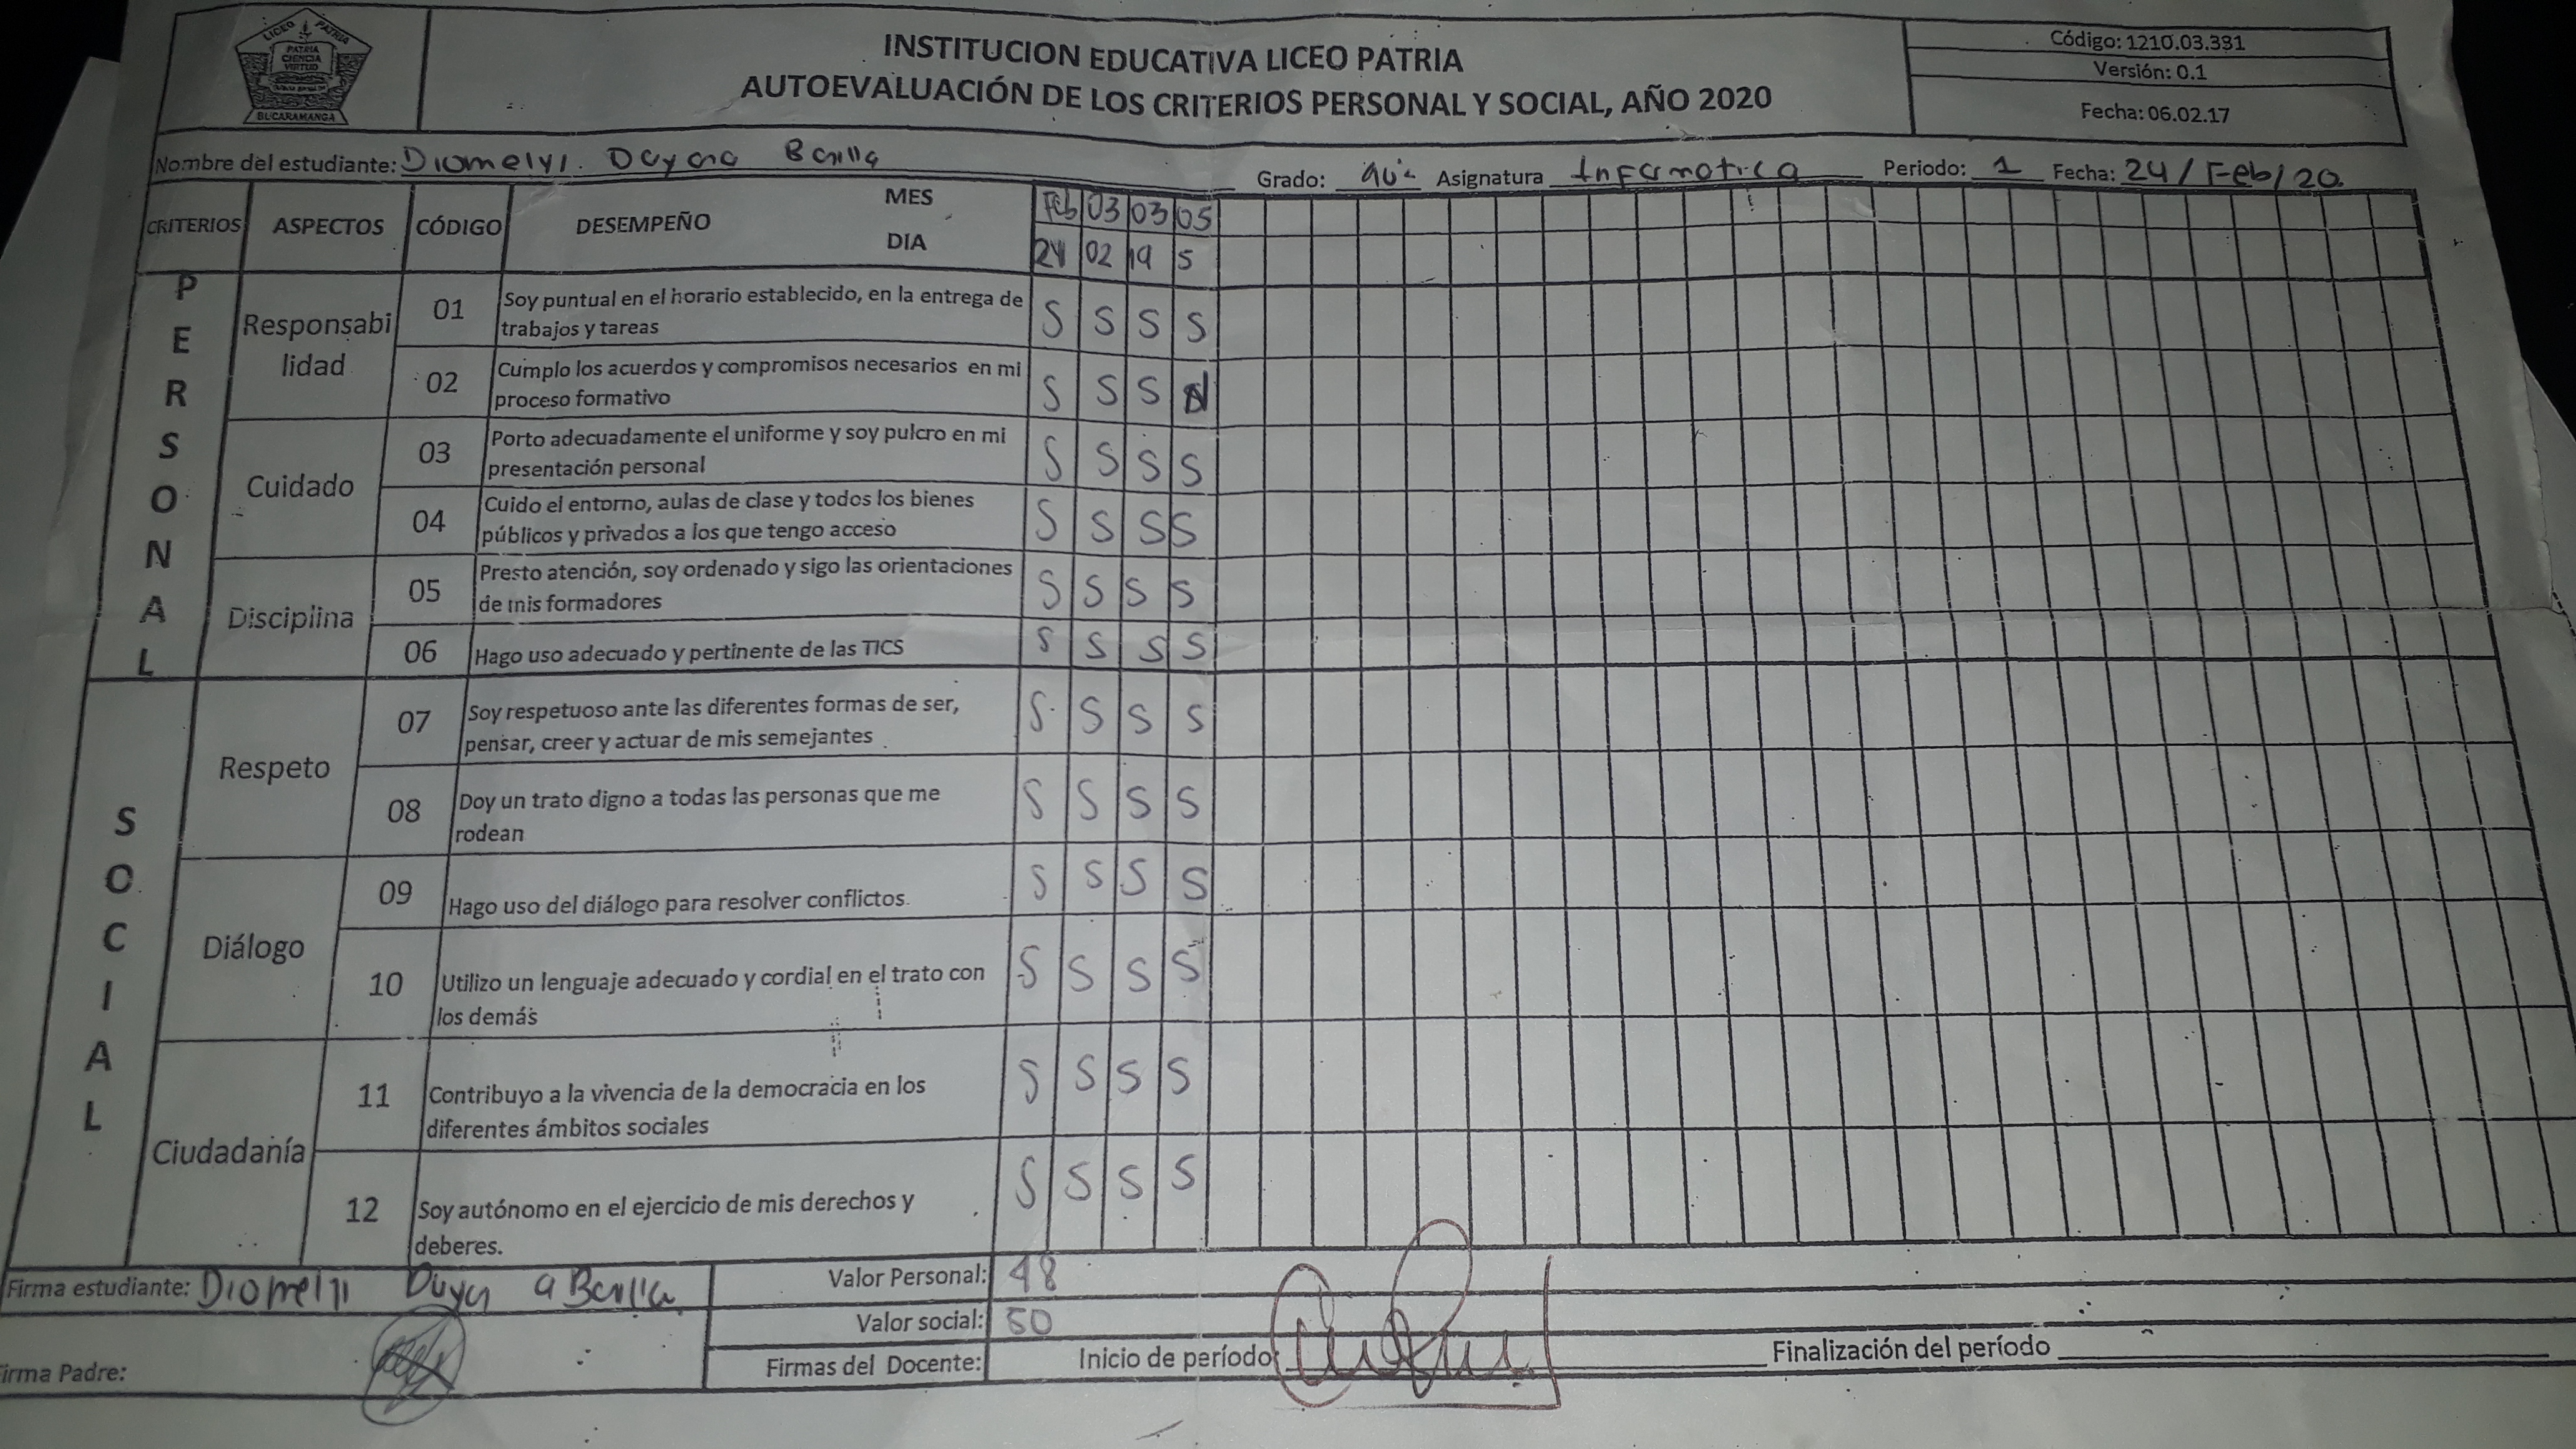 LICEO PATRIA
PATRIA
CIENCIA
VIRTUD
BUCARAMANGA
INSTITUCION EDUCATIVA LICEO PATRIA
AUTOEVALUACIÓN DE LOS CRITERIOS PERSONAL Y SOCIAL, AÑO 2020
Código: 1210.03.391
Versión: 0.1
Fecha: 06.02.17
Nombre del estudiante: Diomelyi. Dayana Bonilla Grado: Asignatura Informatica Periodo: 1 Fecha: 24/Feb/20.
CRITERIOS ASPECTOS CÓDIGO DESEMPEÑO MES Feb 03 03 05
DIA 24 02 19 5
PERSONAL
Responsabilidad
01 Soy puntual en el horario establecido, en la entrega de trabajos y tareas S S S S
02 Cumplo los acuerdos y compromisos necesarios en mi proceso formativo S S S N
Cuidado
03 Porto adecuadamente el uniforme y soy pulcro en mi presentación personal S S S S
04 Cuido el entorno, aulas de clase y todos los bienes públicos y privados a los que tengo acceso S S S S
Disciplina
05 Presto atención, soy ordenado y sigo las orientaciones de mis formadores S S S S
06 Hago uso adecuado y pertinente de las TICS S S S S
SOCIAL
Respeto
07 Soy respetuoso ante las diferentes formas de ser, pensar, creer y actuar de mis semejantes S S S S
08 Doy un trato digno a todas las personas que me rodean S S S S
Diálogo
09 Hago uso del diálogo para resolver conflictos. S S S S
10 Utilizo un lenguaje adecuado y cordial en el trato con los demás S S S S
Ciudadanía
11 Contribuyo a la vivencia de la democracia en los diferentes ámbitos sociales S S S S
12 Soy autónomo en el ejercicio de mis derechos y deberes. S S S S
Firma estudiante: Diomelyi Dayana Bonilla Valor Personal: 48
Valor social: 50
Firma Padre: Firmas del Docente: Inicio de período: Finalización del período